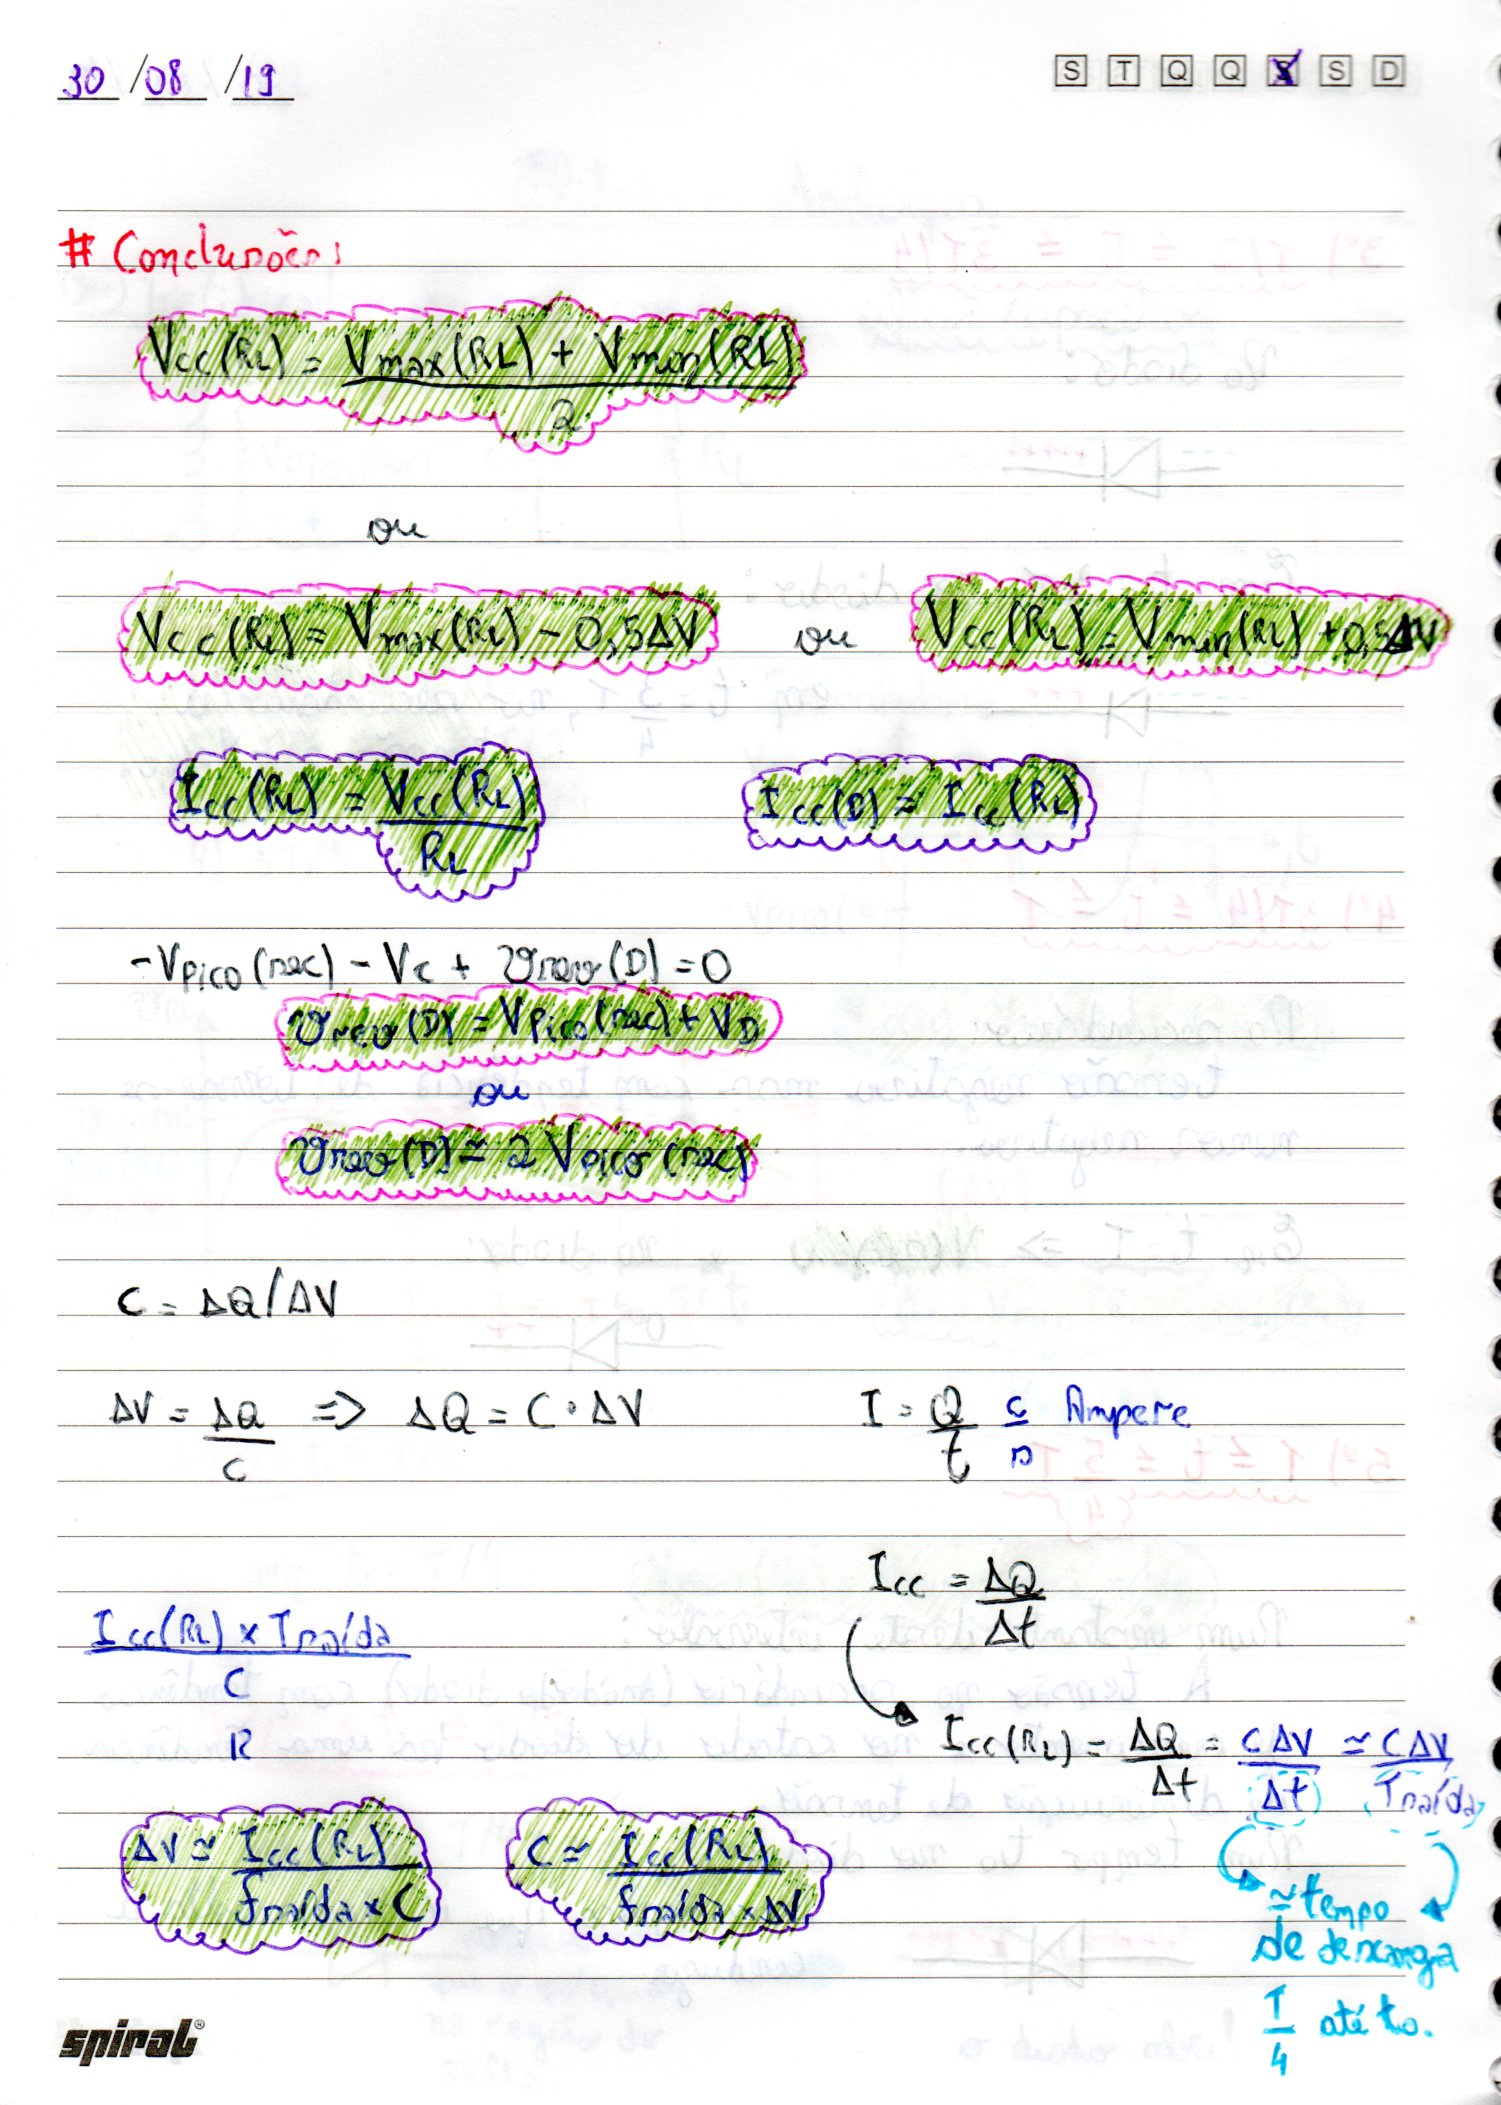 30/08/19 S T Q Q S S D
# Conclusões:
Vcc(RL) = Vmax(RL) + Vmin(RL)
2
ou
Vcc(RL) = Vmax(RL) - 0,5ΔV ou Vcc(RL) = Vmin(RL) + 0,5ΔV
Icc(RL) = Vcc(RL) Icc(D) = Icc(RL)
RL
-Vpico(sec) - Vc + Vrev(D) = 0
Vrev(D) = Vpico(sec) + VD
ou
Vrev(D) ≃ 2 Vpico(sec)
C = ΔQ/ΔV
ΔV = ΔQ => ΔQ = C·ΔV I = Q C Ampere
C t s
Icc = ΔQ
Δt
Icc(RL) x Tsaída
C
R
Icc(RL) = ΔQ = CΔV ≃ CΔV
Δt Δt Tsaída
ΔV ≃ Icc(RL) C ≃ Icc(RL)
fsaída x C fsaída x ΔV
≃ tempo
de descarga
T até to.
4
spiral®